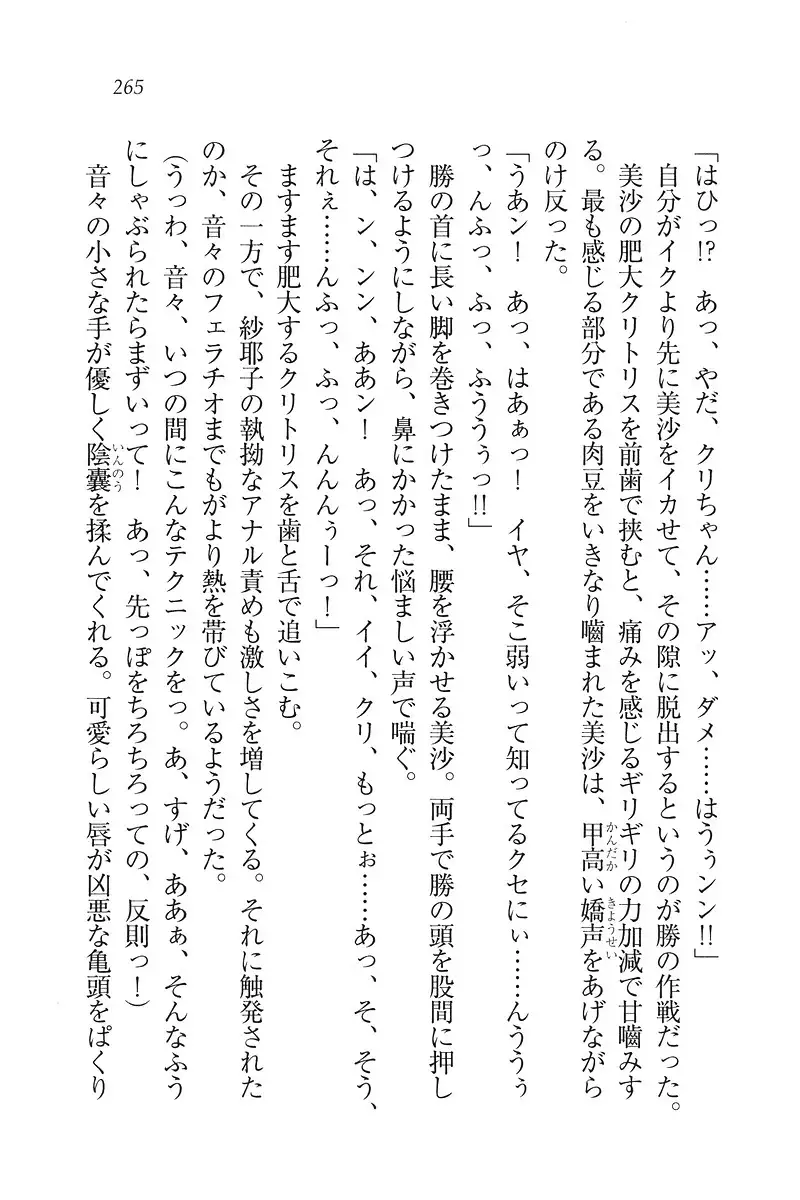 265
「はひっ!?　あっ、やだ、クリちゃん……アッ、ダメ……はうぅンン!!」
　自分がイクより先に美沙をイカせて、その隙に脱出するというのが勝の作戦だった。
　美沙の肥大クリトリスを前歯で挟むと、痛みを感じるギリギリの力加減で甘嚙みす
る。最も感じる部分である肉豆をいきなり嚙まれた美沙は、甲高い嬌声をあげながら
のけ反った。
「うあン！　あっ、はあぁっ！　イヤ、そこ弱いって知ってるクセにぃ……んううぅ
っ、んふっ、ふっ、ふううぅっ!!」
　勝の首に長い脚を巻きつけたまま、腰を浮かせる美沙。両手で勝の頭を股間に押し
つけるようにしながら、鼻にかかった悩ましい声で喘ぐ。
「は、ン、ンン、ああン！　あっ、それ、イイ、クリ、もっとぉ……あっ、そ、そう、
それぇ……んふっ、ふっ、んんんぅーっ！」
　ますます肥大するクリトリスを歯と舌で追いこむ。
　その一方で、紗耶子の執拗なアナル責めも激しさを増してくる。それに触発された
のか、音々のフェラチオまでもがより熱を帯びているようだった。
（うっわ、音々、いつの間にこんなテクニックをっ。あ、すげ、ああぁ、そんなふう
にしゃぶられたらまずいって！　あっ、先っぽをちろちろっての、反則っ！）
　音々の小さな手が優しく陰囊を揉んでくれる。可愛らしい唇が凶悪な亀頭をぱくり